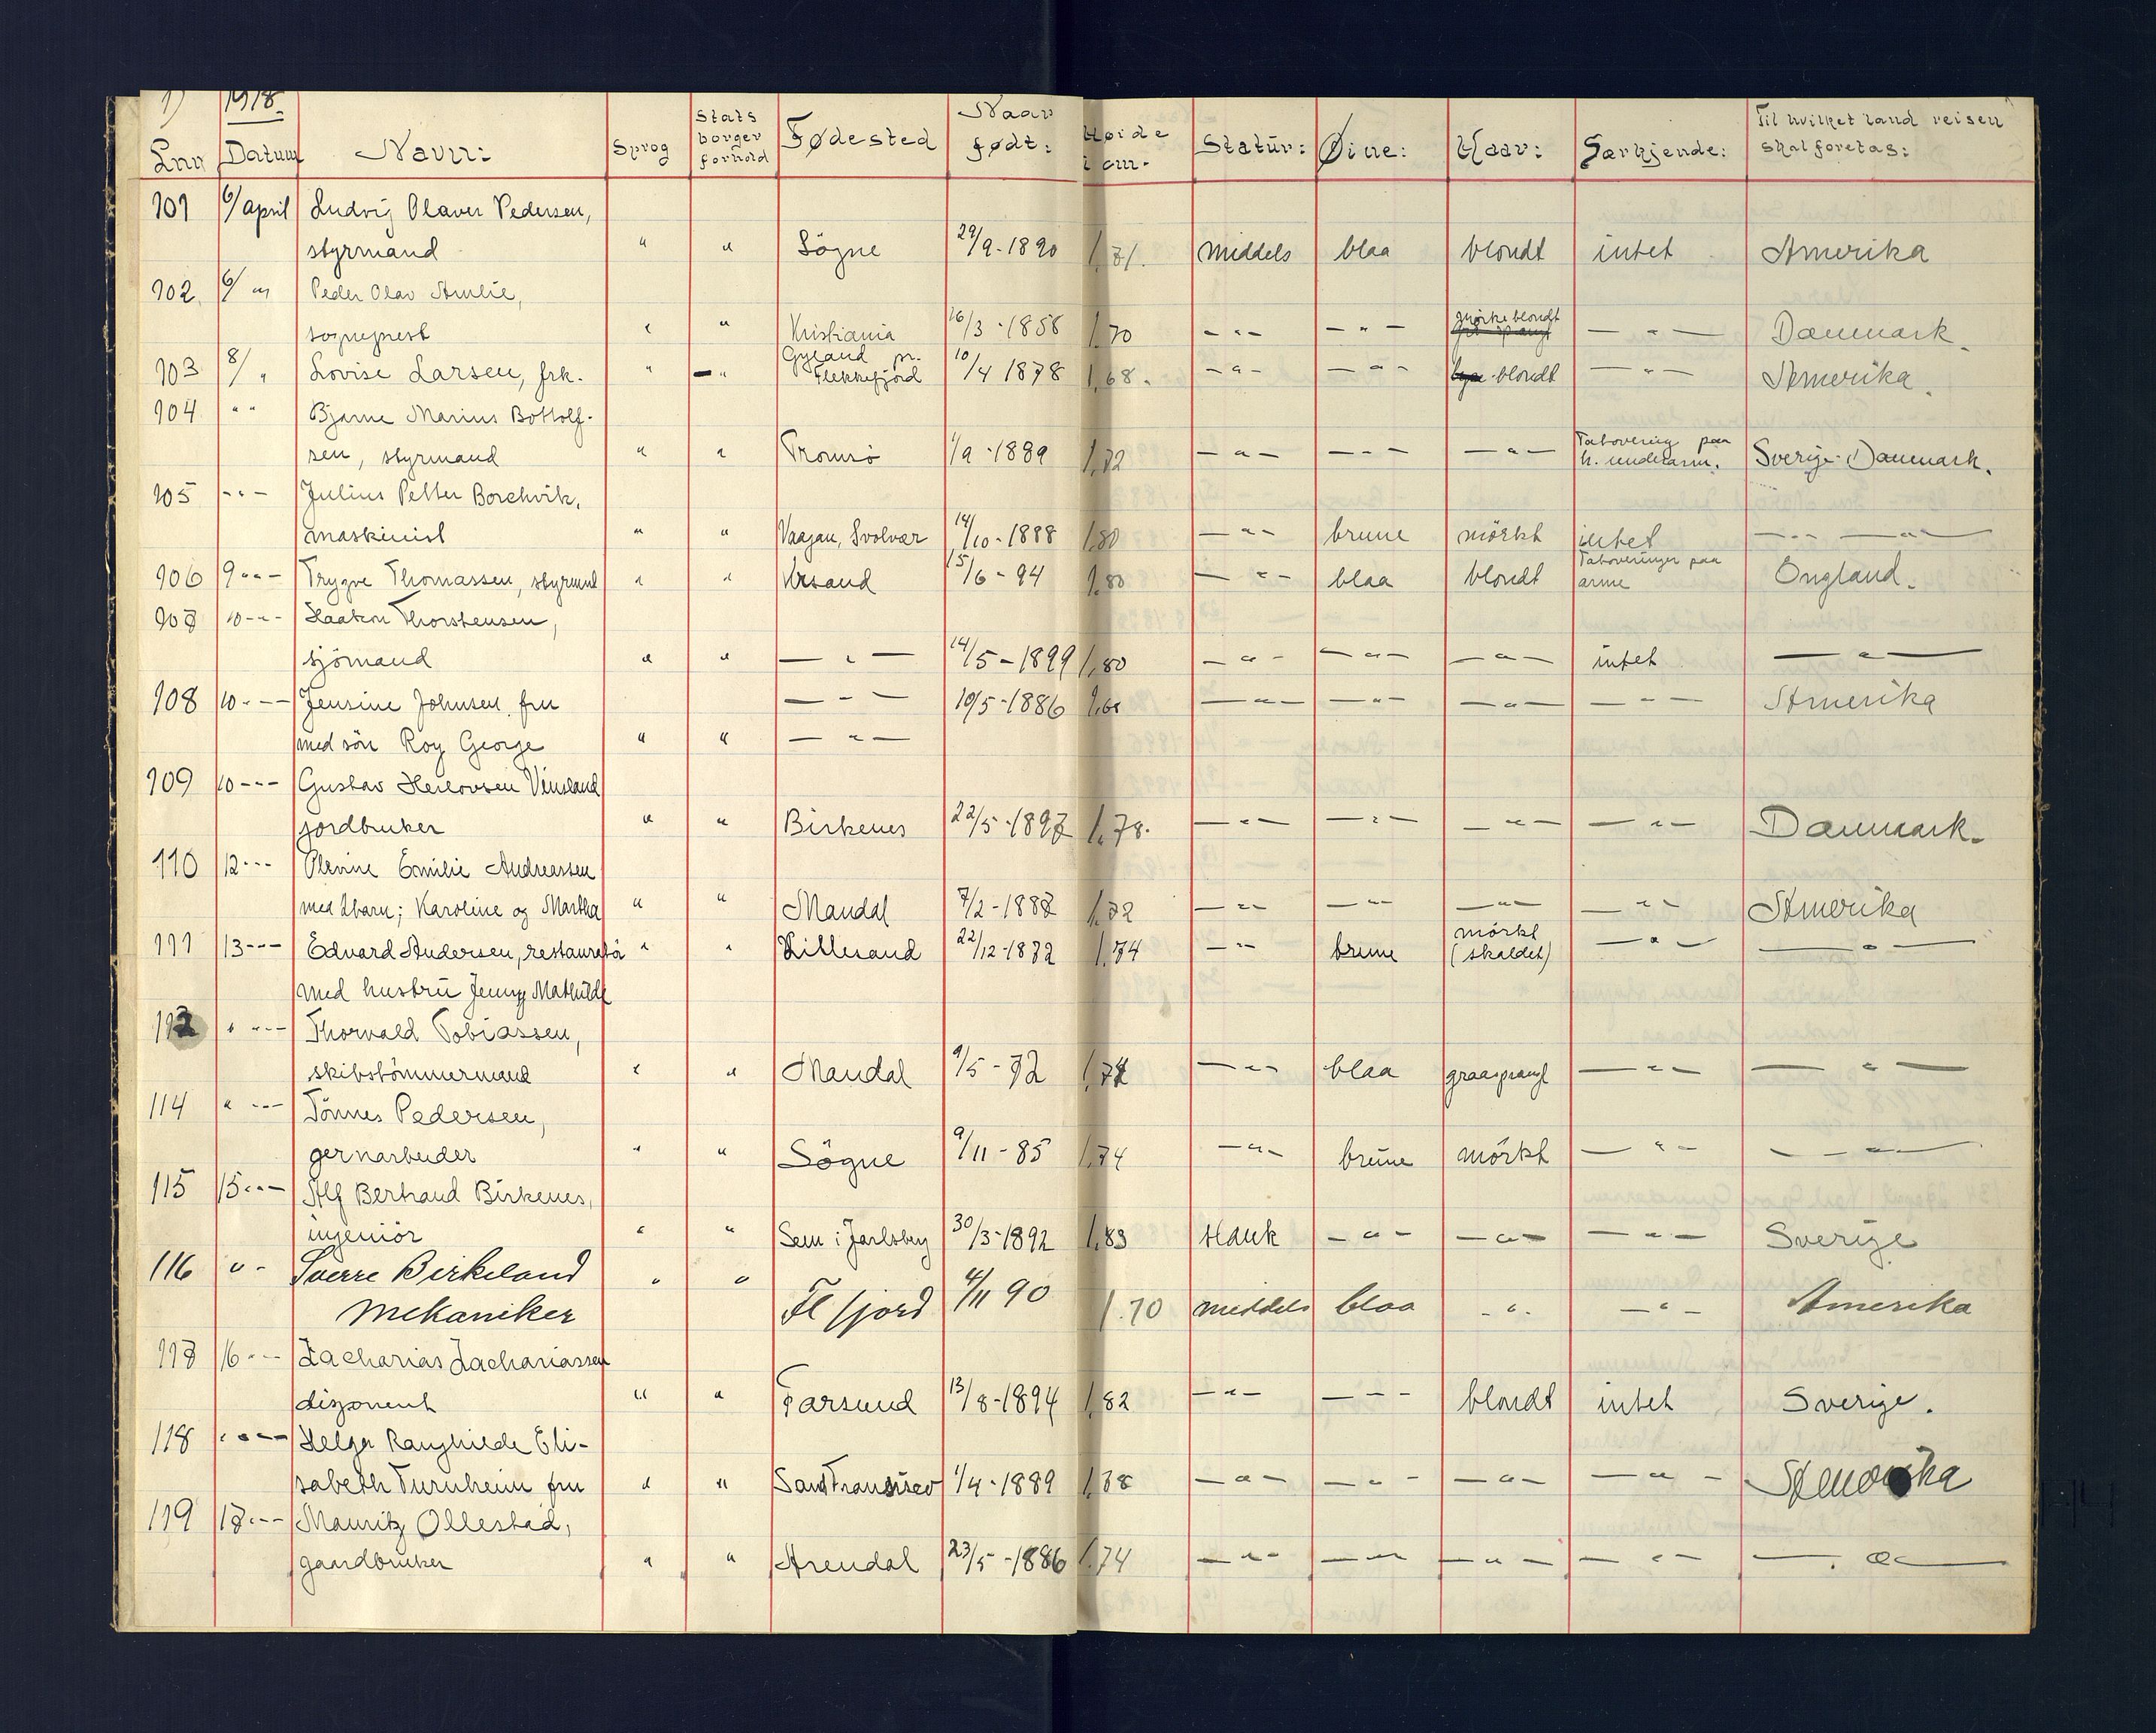 1) 1918.
Lnr Datum Navn: Sprog Stats borger forhold Fødested Naar født: Høide i cm. Statur: Øine: Haar: Særkjende: Til hvilket land reisen skal foretas:
101 6/april Ludvig Olaver Pedersen,
styrmand " " Sögne 29/9-1890 1,71. middels blaa blondt intet Amerika
102 6/ " Peder Olav Amlie,
sogneprest " " Kristiania 16/3-1858 1,70 -"- -"- mørkeblondt -"- Danmark.
103 8/ " Lovise Larsen, frk. " " Gyland pr. Flekkefjord 10/4 1878 1,68. -"- -"- blondt -"- Amerika.
104 " " Bjarne Marius Bottolf-
sen, styrmand " " Tromsö 1/9-1889 1,72 -"- -"- -"- Tatovering paa h. underarm. Sverige-Danmark.
105 -"- Julius Petter Borchvik,
maskinist " " Vaagan, Svolvær 14/10-1888 1,80 -"- brune mörkt intet -"- -"-
106 9-"- Trygve Thomassen, styrmd " " Krsand 15/6-94 1,80 -"- blaa blondt Tatoveringer paa arme England.
107 10-"- Haakon Thorstensen,
sjömand " " -"- 14/5-1899 1,80 -"- -"- -"- intet -"-
108 10-"- Jensine Johnsen fru -"- 10/5-1886 1,60 -"- -"- -"- -"- Amerika
med sön Roy George " " -"-
109 10-"- Gustav Heilovsen Vinsland
jordbruker " " Birkenes 22/5-1897 1,78. -"- -"- -"- -"- Danmark.
110 12-"- Olevine Emilie Andreassen
med 2 barn; Karoline og Martha " " Mandal 7/2-1887 1,72 -"- -"- -"- -"- Amerika
111 13-"- Edvard Andersen, restauratör " " Lillesand 22/12-1872 1,74 -"- brune mörkt (skaldet) -"- -"-
med hustru Jenny Mathilde
112 " -"- Thorvald Tobiassen,
skibstömmermand " " Mandal 9/5-72 1,74 -"- blaa graasprængt -"- -"-
114 " -"- Tönnes Pedersen,
jernarbeider " " Sögne 9/11-85 1,74 -"- brune mörkt -"- -"-
115 15-"- Alf Bertrand Birkenes,
ingeniör " " Sem i Jarlsberg 30/3-1892 1,83 slank -"- -"- -"- Sverige
116 " - Sverre Birkeland
mekaniker " " Fl fjord 4/11 90 1.70 middels blaa -"- -"- Amerika
117 16-"- Zacharias Zachariassen
disponent " " Farsund 13/8-1894 1,82 -"- -"- blondt intet Sverige.
118 " -"- Helga Ranghilde Eli-
sabeth Turnheim fru " " San Fransisco 1/4-1889 1,78 -"- -"- -"- -"- Amerika
119 17-"- Mauritz Ollestad,
gaardbruker " " Arendal 23/5-1886 1.74 -"- -"- -"- -"- -"-